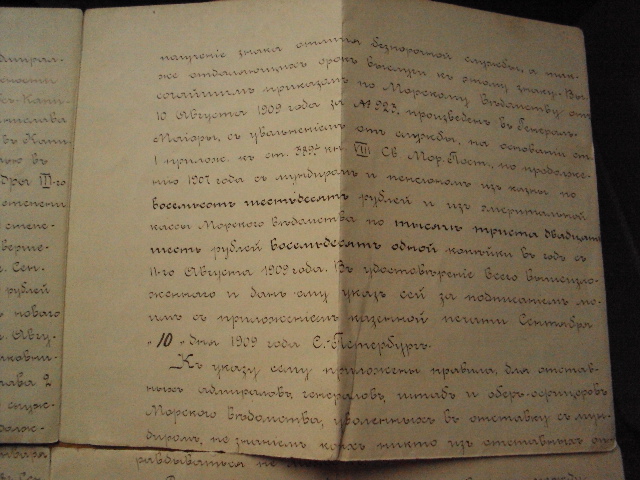 дмирал-
получение знака отличія безпорочной службы, а так-
же отдаляющихъ срокъ выслуги къ этому знаку. Вы-
сочайшимъ приказомъ по Морскому Вѣдомству отъ
10 Августа 1909 года за № 923, произведенъ въ Генералъ-
Маіоры, съ увольненіемъ отъ службы, на основаніи ст.
1 прилож. къ ст. кн. VIII Св. Мор. Пост., по продолже-
нію 1907 года съ мундиромъ и пенсіономъ изъ казны по
восемьсотъ шестьдесятъ рублей и изъ эмеритальной
кассы Морского Вѣдомства по тысячѣ триста двадцати
шесть рублей восемьдесятъ одной копѣйки въ годъ съ
11-го Августа 1909 года. Въ удостовѣреніе всего вышеизло-
женнаго и данъ ему указъ сей за подписаніемъ мо-
имъ съ приложеніемъ казенной печати Сентября
„10" дня 1909 года С.-Петербургъ.
Къ указу сему приложены правила, для отстав-
ныхъ адмираловъ, генераловъ, штабъ и оберъ-офицеровъ
Морского Вѣдомства, уволенныхъ въ отставку съ мун-
диромъ, не знаніемъ коихъ никто изъ отставныхъ оп-
равдываться не
слава
въ Капи-
III-го
степе-
рублей
новаго
Авгу-
лава 2